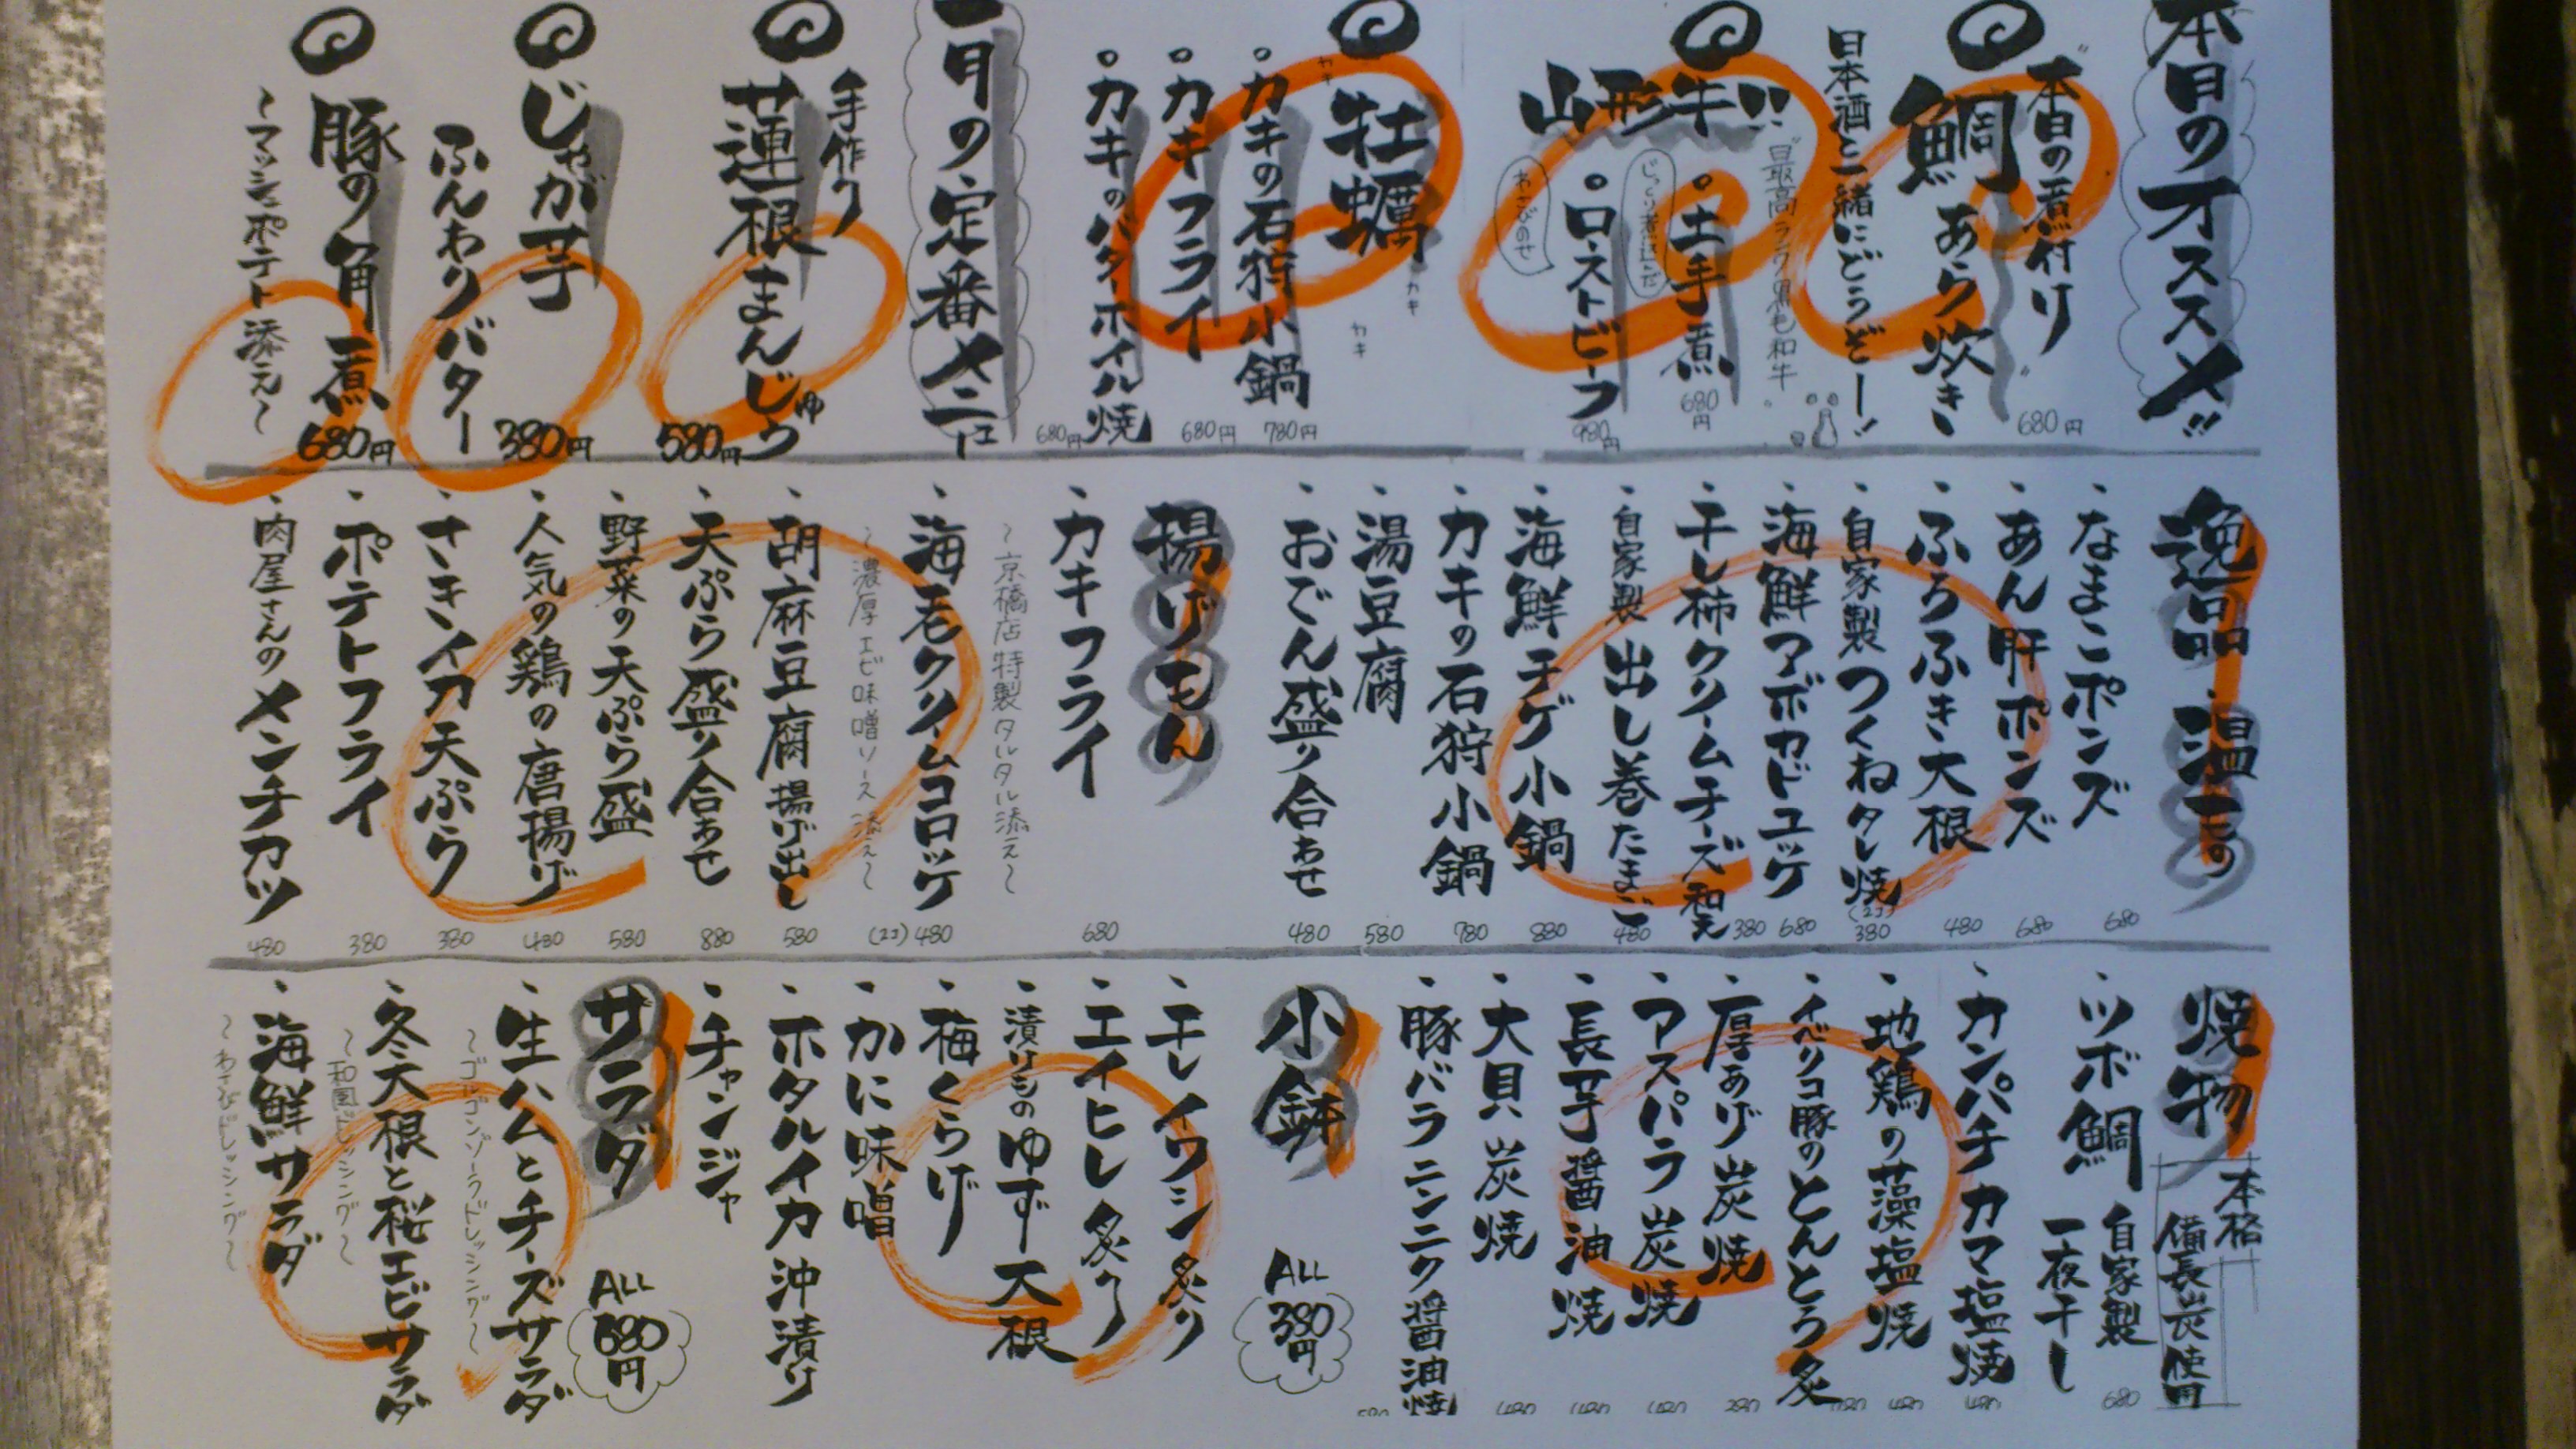 本日のオススメ!!
"本日の煮付け"
鯛あら炊き
680円
日本酒と一緒にどうぞー!
山形牛!!
最高ランク黒毛和牛
・土手煮
じっくり煮込んだ
680円
・ローストビーフ
わさびのせ
980円
牡蠣
カキ
カキ
カキ
・カキの石狩小鍋
780円
・カキフライ
680円
・カキのバターホイル焼
680円
一月の定番メニュー
手作り
蓮根まんじゅう
580円
じゃが芋
ふんわりバター
380円
豚の角煮
680円
~マッシュポテト添え~
逸品・温もの
・なまこポンズ
680
・あん肝ポンズ
680
・ふろふき大根
480
・自家製つくねタレ焼
(2コ)
380
・海鮮アボカドユッケ
680
・干し柿クリームチーズ和え
380
・自家製 出し巻たまご
480
・海鮮チゲ小鍋
880
・カキの石狩小鍋
780
・湯豆腐
580
・おでん盛り合わせ
480
揚げもん
・カキフライ
680
~京橋店特製タルタル添え~
・海老クリームコロッケ
(2コ) 480
~濃厚エビ味噌ソース添え~
・胡麻豆腐揚げ出し
580
・天ぷら盛り合わせ
880
・野菜の天ぷら盛
580
・人気の鶏の唐揚げ
480
・さきイカ天ぷら
380
・ポテトフライ
380
・肉屋さんのメンチカツ
480
焼物
本格
備長炭使用
・ツボ鯛 自家製
一夜干し
680
・カンパチカマ塩焼
480
・地鶏の藻塩焼
480
・イベリコ豚のとんとろ炙
・厚あげ炭焼
280
・アスパラ炭焼
480
・長芋醤油焼
480
・大貝炭焼
480
・豚バラニンニク醤油焼
580
小鉢
ALL
380
円
・干しイワシ炙り
・エイヒレ炙り
・漬けものゆず大根
・梅くらげ
・かに味噌
・ホタルイカ沖漬け
・チャンジャ
サラダ
ALL
580
円
・生ハムとチーズサラダ
~ゴルゴンゾーラドレッシング~
・冬大根と桜エビサラダ
~和風ドレッシング~
・海鮮サラダ
~わさびドレッシング~